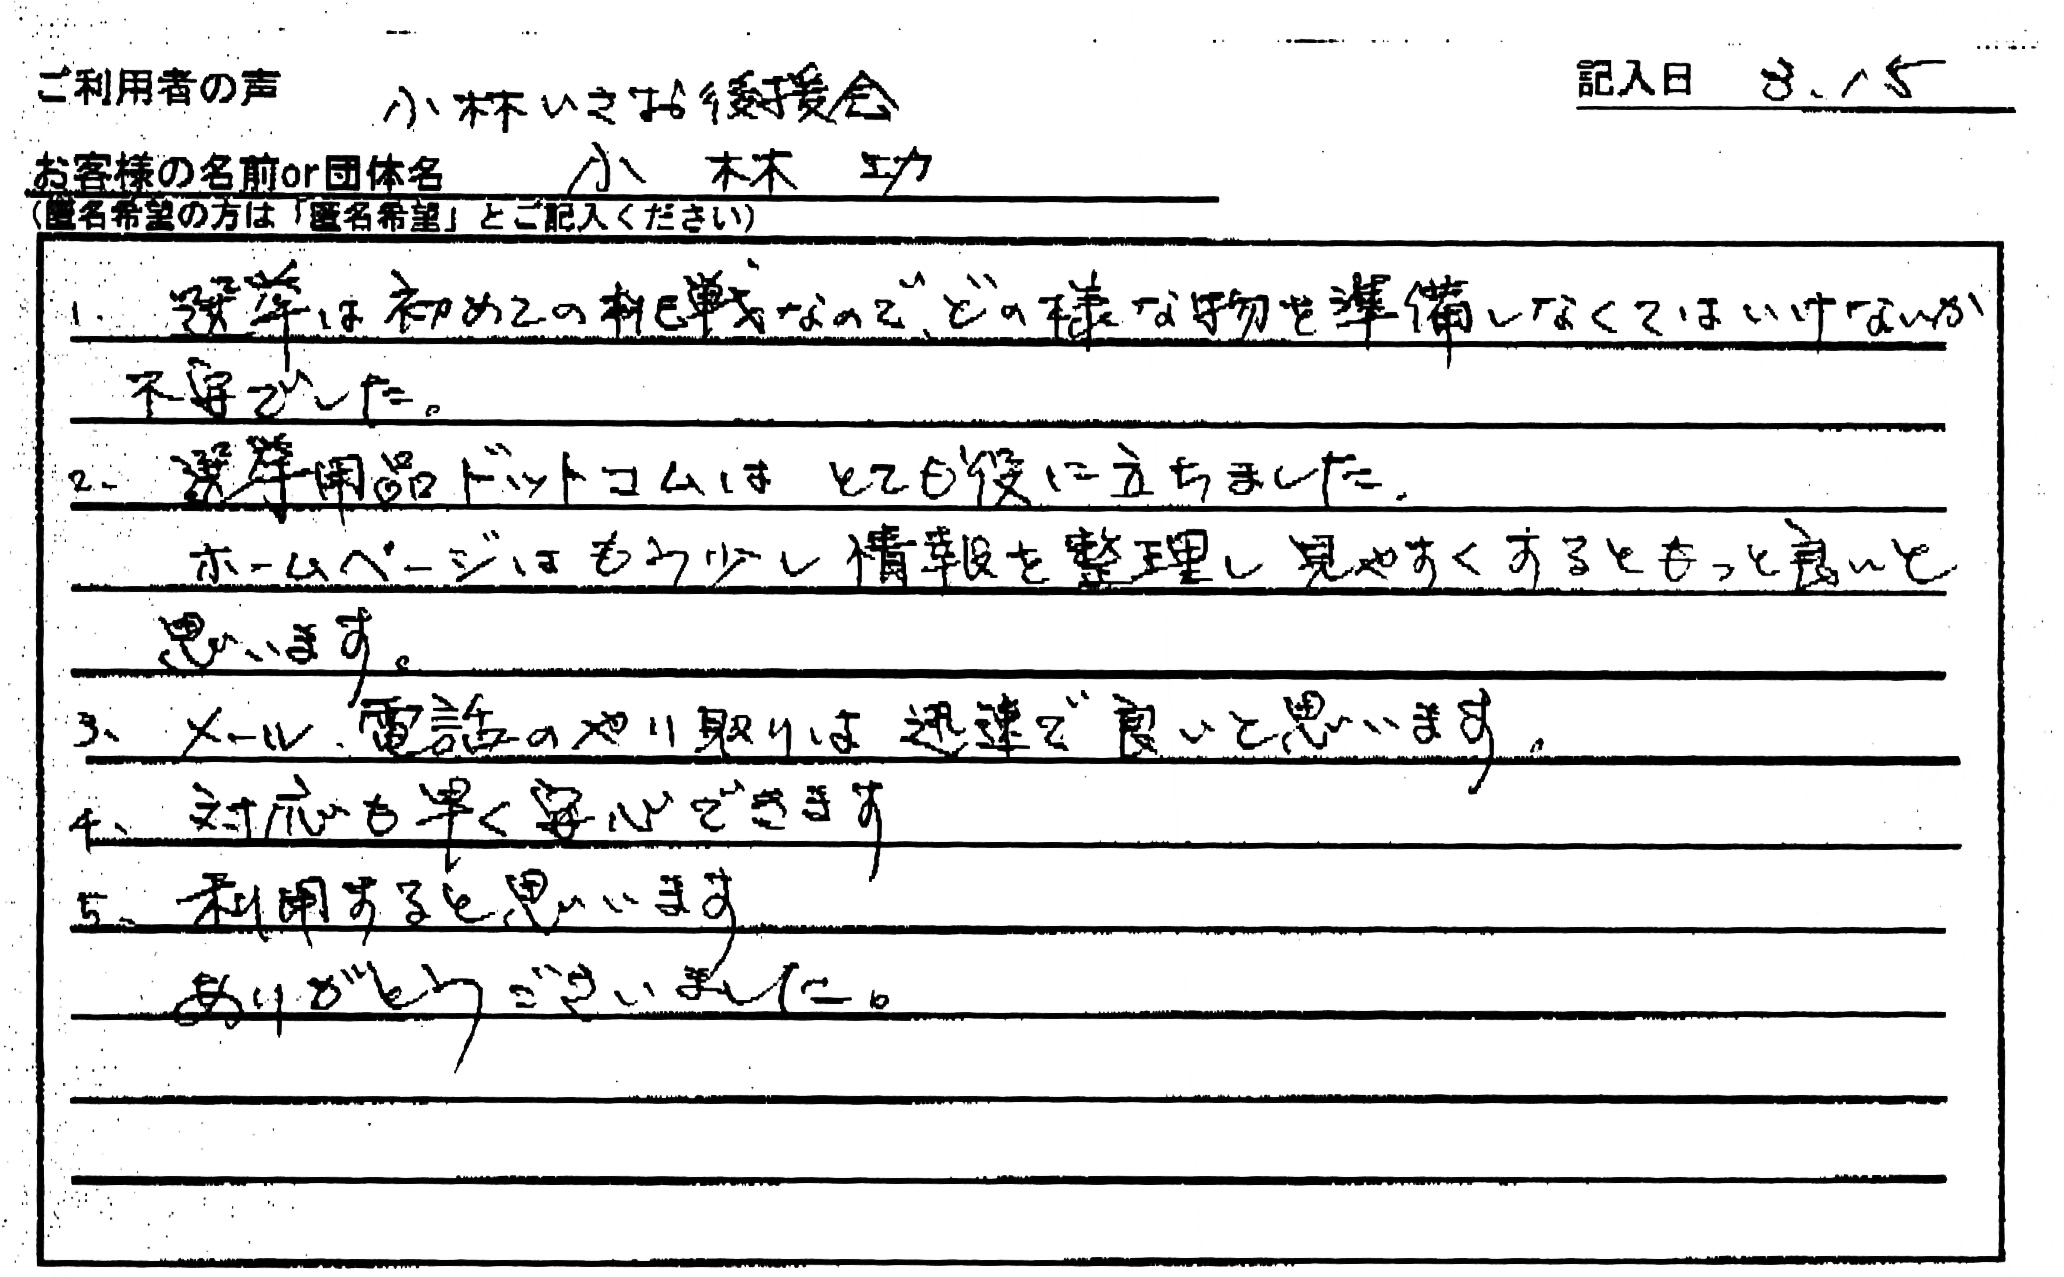 ご利用者の声 小林いさお後援会 記入日 3.15
お客様の名前or団体名 小林 功
(匿名希望の方は「匿名希望」とご記入ください)
1. 選挙は初めての挑戦なので、どの様な物を準備しなくてはいけないか
不安でした。
2、選挙用品ドットコムは とても役に立ちました.
ホームページはもう少し情報を整理し見やすくするともっと良いと
思います。
3、メール、電話のやり取りは迅速で良いと思います。
4、対応も早く安心できます
5、利用すると思います
ありがとうございました。